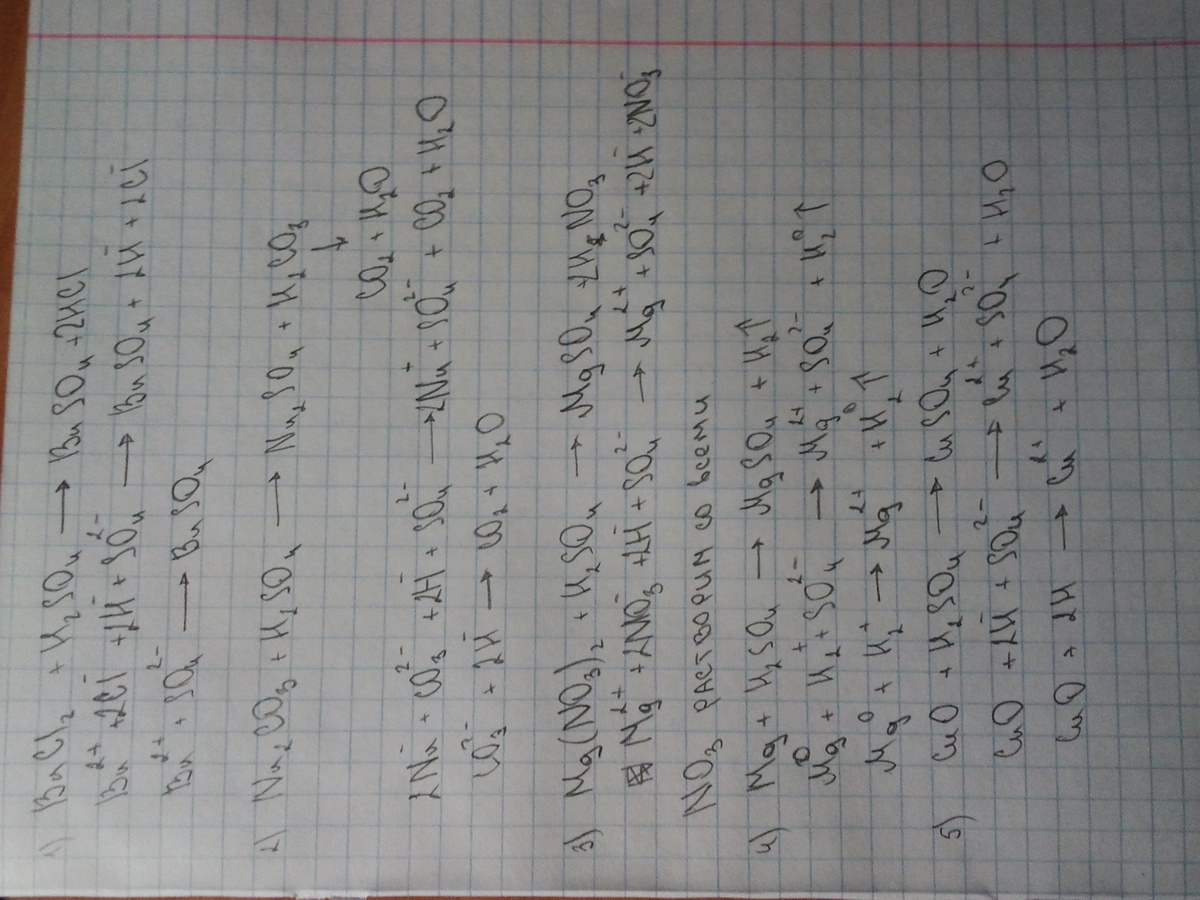 1) BaCl₂ + H₂SO₄ → BaSO₄ + 2HCl
Ba²⁺ + 2Cl⁻ + 2H⁺ + SO₄²⁻ → BaSO₄ + 2H⁺ + 2Cl⁻
Ba²⁺ + SO₄²⁻ → BaSO₄
2) Na₂CO₃ + H₂SO₄ → Na₂SO₄ + H₂CO₃
↓
CO₂ + H₂O
2Na⁺ + CO₃²⁻ + 2H⁺ + SO₄²⁻ → 2Na⁺ + SO₄²⁻ + CO₂ + H₂O
CO₃²⁻ + 2H⁺ → CO₂ + H₂O
3) Mg(NO₃)₂ + H₂SO₄ → MgSO₄ + 2HNO₃
Mg²⁺ + 2NO₃⁻ + 2H⁺ + SO₄²⁻ → Mg²⁺ + SO₄²⁻ + 2H⁺ + 2NO₃⁻
NO₃ растворим со всеми
4) Mg + H₂SO₄ → MgSO₄ + H₂↑
Mg⁰ + H₂⁺ + SO₄²⁻ → Mg²⁺ + SO₄²⁻ + H₂⁰↑
Mg⁰ + H₂⁺ → Mg²⁺ + H₂⁰↑
5) CuO + H₂SO₄ → CuSO₄ + H₂O
CuO + 2H⁺ + SO₄²⁻ → Cu²⁺ + SO₄²⁻ + H₂O
CuO + 2H → Cu²⁺ + H₂O